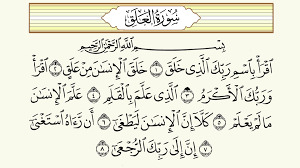 سُورَةُ العَلَقِ
بِسْمِ اللَّهِ الرَّحْمَٰنِ الرَّحِيمِ
ٱقْرَأْ بِٱسْمِ رَبِّكَ ٱلَّذِى خَلَقَ ١ خَلَقَ ٱلْإِنسَٰنَ مِنْ عَلَقٍ ٢ ٱقْرَأْ
وَرَبُّكَ ٱلْأَكْرَمُ ٣ ٱلَّذِى عَلَّمَ بِٱلْقَلَمِ ٤ عَلَّمَ ٱلْإِنسَٰنَ
مَا لَمْ يَعْلَمْ ٥ كَلَّآ إِنَّ ٱلْإِنسَٰنَ لَيَطْغَىٰٓ ٦ أَن رَّءَاهُ ٱسْتَغْنَىٰٓ
٧ إِنَّ إِلَىٰ رَبِّكَ ٱلرُّجْعَىٰٓ ٨